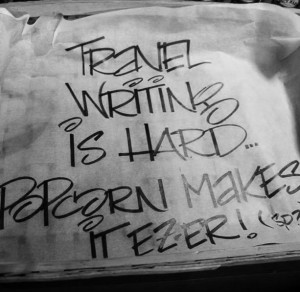 TRAVEL
WRITING
IS HARD...
POPCORN MAKES
IT EZER! (SP?